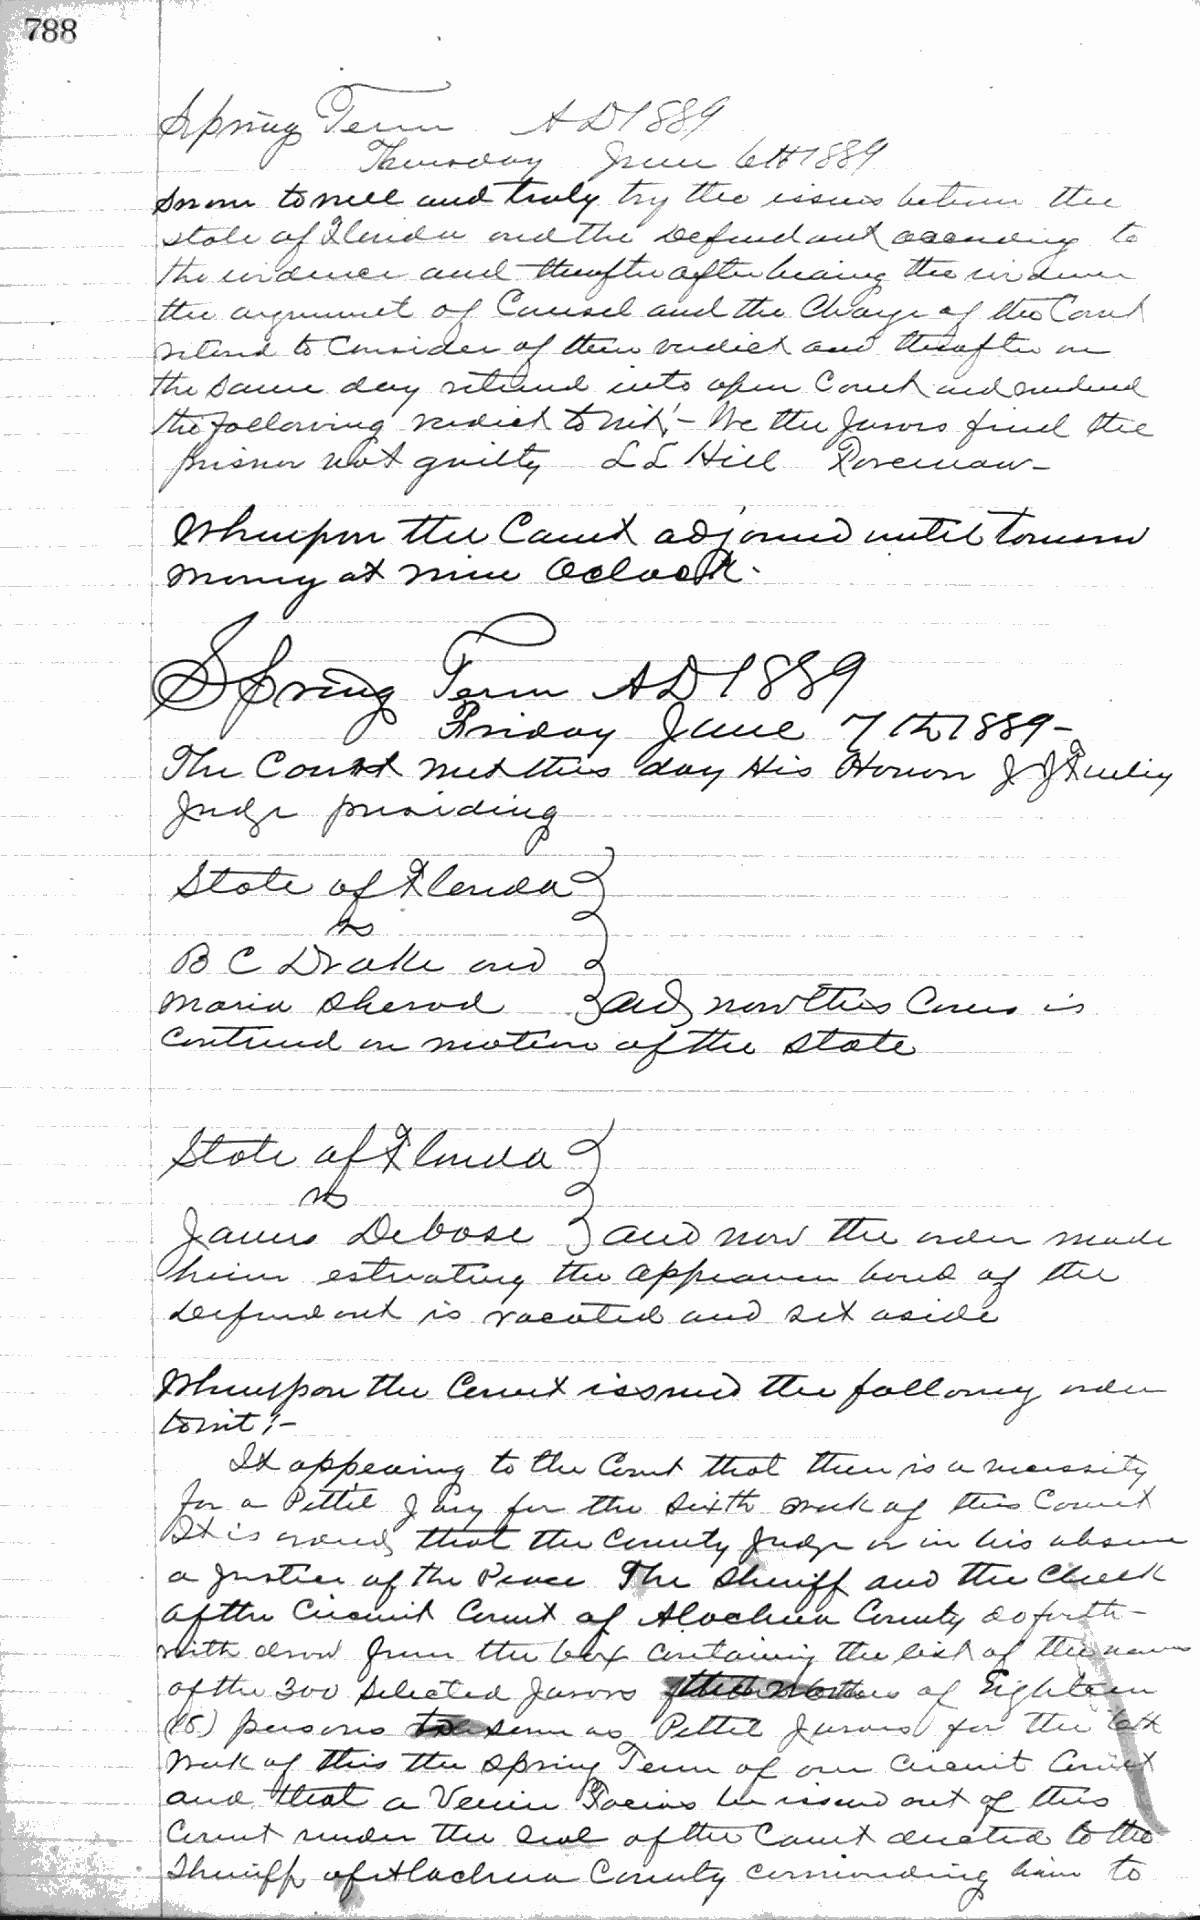 788
Spring Term AD 1889
Thursday June 6th 1889
Sworn to well and truly try the issues between the
state of Florida and the Defendant according to
the evidence and thereafter after hearing the evidence
the argument of Counsel and the Charge of the Court
retired to Consider of their verdict and thereafter on
the same day returned into open Court and rendered
the following verdict towit:- We the Jurors find the
prisner not guilty L L Hill Foreman-
Whereupon the Court adjorned until tomorrow
morning at nine Oclock.
Spring Term AD 1889
Friday June 7th 1889-
The Court met this day His Honor J J Finley
Judge presiding
State of Florida
vs
B C Drake and
Maria Sherod and now this Cause is
Contiued on motion of the State
State of Florida
vs
James Debose and now the order made
herein estreating the appearance bond of the
Defendant is vacated and set aside
Whereupon the Court issued the following order
towit:-
It appearing to the Court that there is a necessity
for a Pettit Jury for the sixth week of this Court
It is ordered that the County Judge or in his absence
a Justice of the Peace The Sheriff and the Clerk
of the Circuit Court of Alachua County do forth-
with draw from the box containing the list of the names
of the 300 selected Jurors the names of Eighteen
(18) persons to serve as Pettit Jurors for the 6th
Week of this the Spring Term of our Circuit Court
and that a Venire Facias be issued out of this
Court under the Seal of the Court directed to the
Sheriff of Alachua County commanding him to